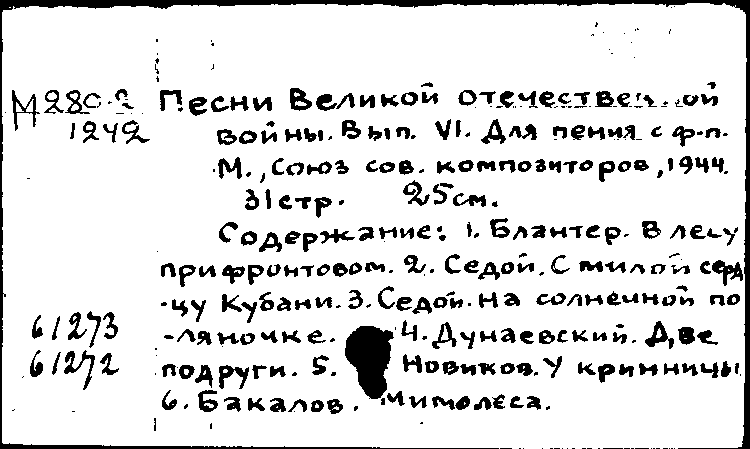 М280-2 Песни Великой отечественной
1242 войны. Вып. VI. Для пения с ф.-п.
М., Союз сов. композиторов, 1944.
31 стр. 25 см.
Содержание: 1. Блантер. В лесу
прифронтовом. 2. Седой. С милой серд
-цу Кубани. 3. Седой. На солнечной по
61273 -ляночке. 4. Дунаевский. Две
61272 подруги. 5. Новиков. У кринницы
6. Бакалов. Мимолеса.